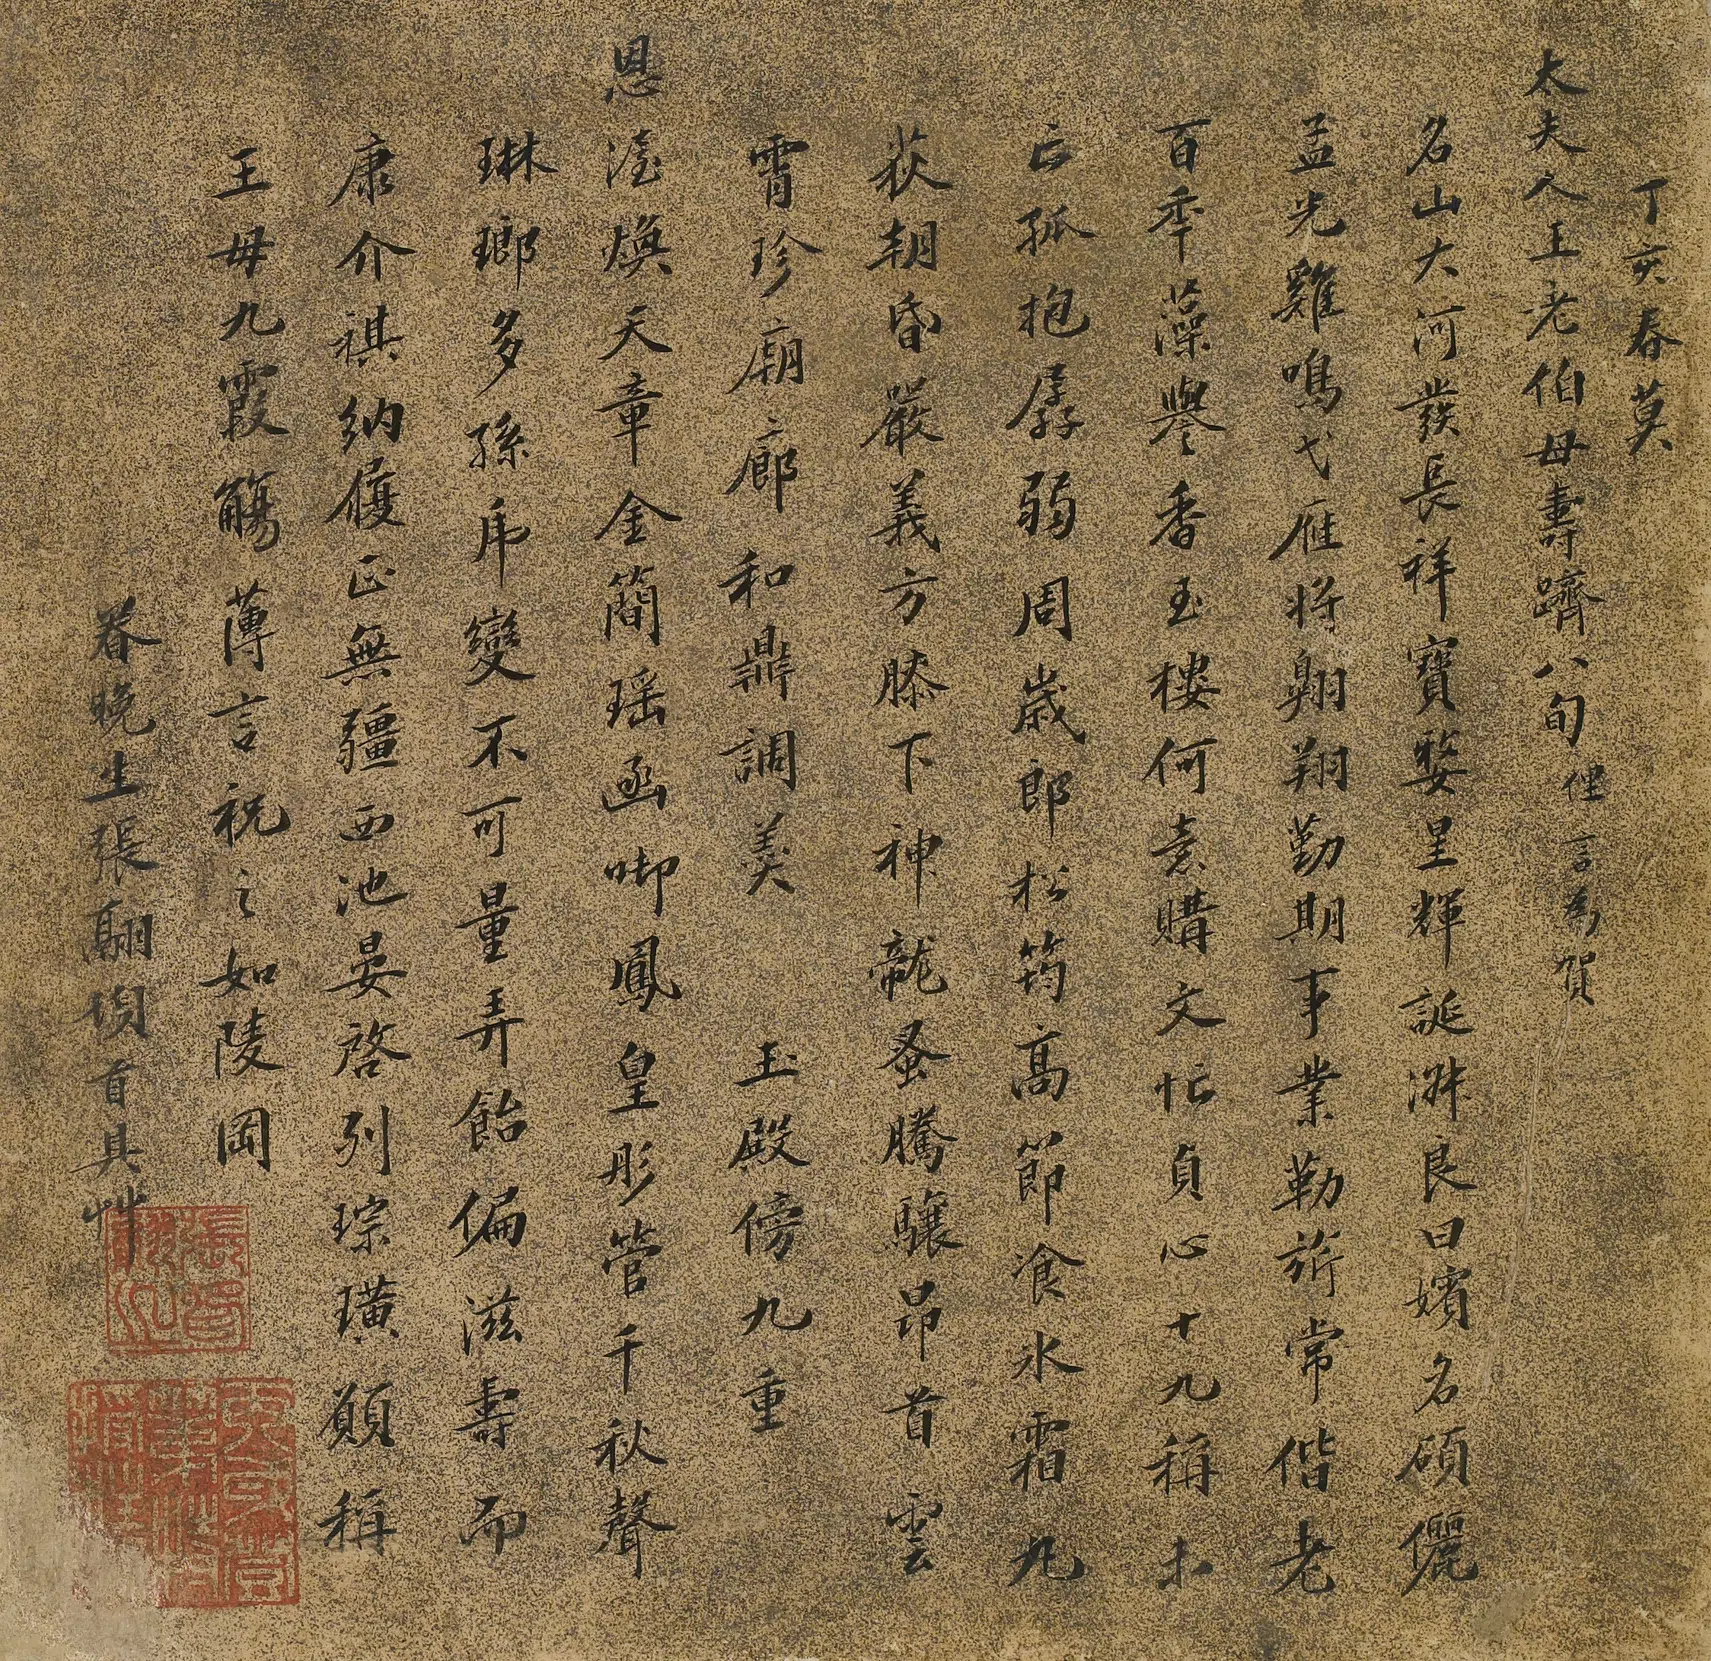 丁亥春莫
太夫人王老伯母壽躋八旬俚言為賀
名山大河發長祥寶婺呈輝誕淑良曰嬪名碩儷
孟光雞鳴弋雁將翱翔勤期事業勒旂常偕老
百年藻譽香玉樓何意購文忙貞心十九稱未
亡孤抱孱弱周歲郎松筠高節飡冰霜丸
荻朝昏嚴義方膝下神龍蚤騰驤昂首雲
霄珍廟廊和鼎調羹玉殿傍九重
恩澤煥天章金簡瑤函啣鳳皇彤管千秋聲
琳瑯多孫采變不可量弄飴偏滋壽而
康介祺納履正無疆西池晏啓列琮璜願稱
王母九霞觴薄言祝之如陵岡
眷晚生張翮頓首具草